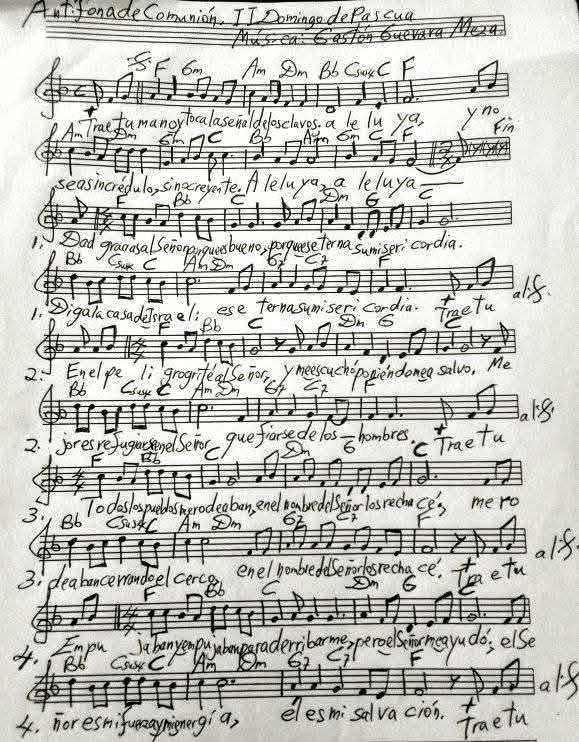 Antífona de Comunión. II Domingo de Pascua
Música: Gastón Guevara Meza.
F Gm Am Dm Bb Csus4 C F
+ Trae tu mano y toca la señal de los clavos. a le lu ya, y no
Am Dm Gm C Bb Am Gm C F Fin
seas incrédulo, sino creyente. A leluya, a leluya
F Bb C Dm G C
1. Dad graaasal Señor porque es bueno, porque es eterna su miseri cordia.
Bb Csus4 C Am Dm G7 C7 F
1. Diga la casa de Israel: es e terna su miseri cordia. + Trae tu al :S:
F Bb C Dm G C
2. En el pe li gro grité al Señor, y me escuchó poniéndome a salvo. Me
Bb Csus4 C Am Dm G7 C7 F
2. jor es refugiarse en el Señor que fiarse de los hombres. + Trae tu al :S:
F Bb C Dm G C
3. Todos los pueblos me rodeaban, en el nombre del Señor los rechacé, me ro
Bb Csus4 C Am Dm G7 C7 F
3. deaban cerrando el cerco, en el nombre del Señor los rechacé. + Trae tu al :S:
F Bb C Dm G C
4. Empu jaban y empujaban para derribarme, pero el Señor me ayudó; el Se
Bb Csus4 C Am Dm G7 C7 F
4. ñor es mi fuerza y mi energía, él es mi salvación. + Trae tu al :S: